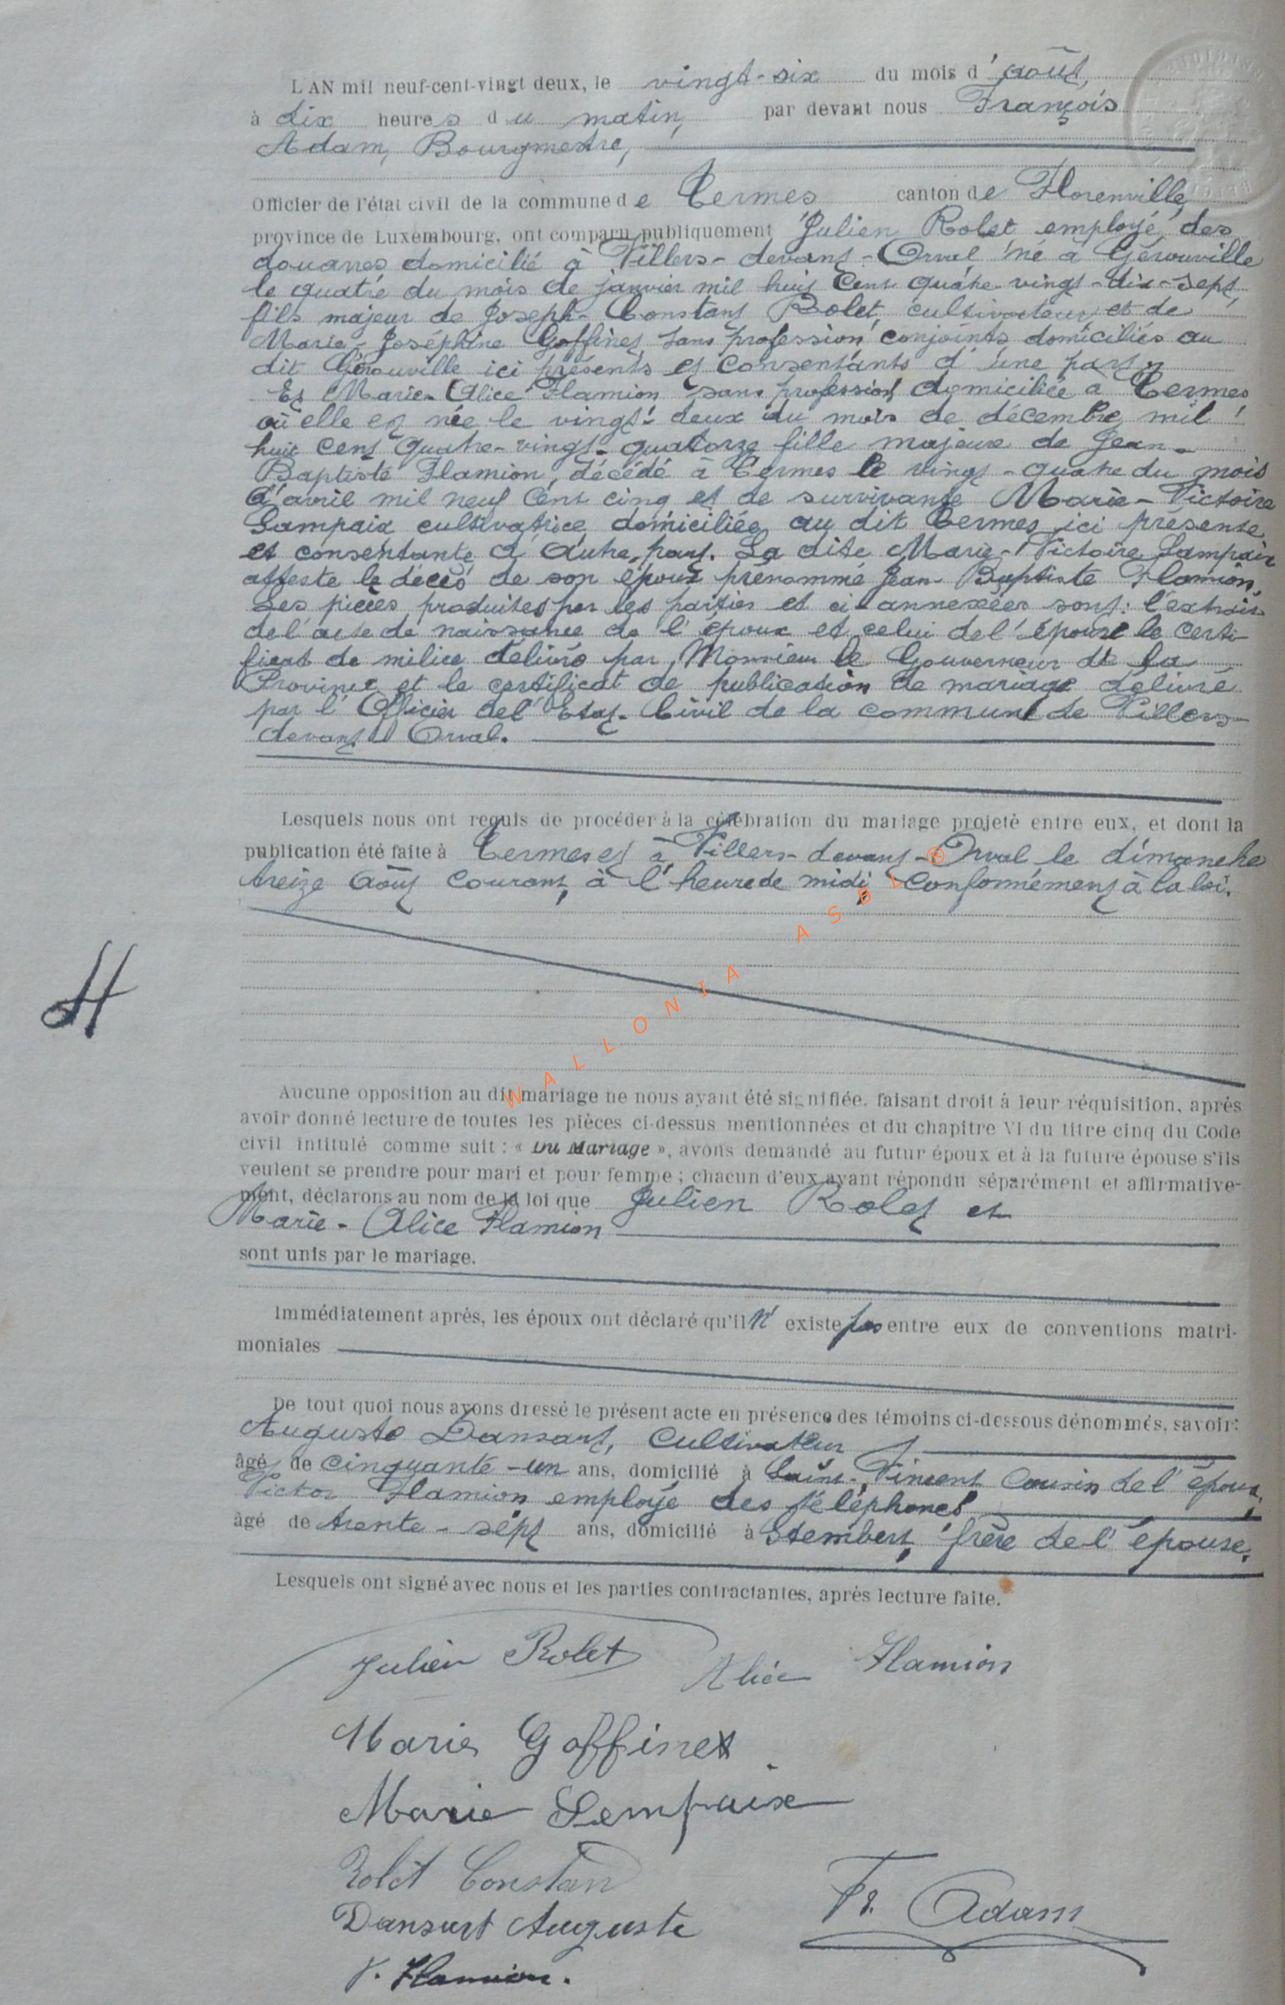 L'AN mil neuf-cent-vingt deux, le vingt-six du mois d'août,
à dix heures du matin, par devant nous François
Adam, Bourgmestre,
Officier de l'état civil de la commune de Termes canton de Florenville,
province de Luxembourg, ont comparu publiquement Julien Rolet employé des
douanes domicilié à Villers-devant-Orval né à Gérouville
le quatre du mois de janvier mil huit cent quatre-vingt-dix-sept,
fils majeur de Joseph-Constant Rolet, cultivateur, et de
Marie-Joséphine Goffinet sans profession, conjoints domiciliés au
dit Gérouville ici présents et consentants d'une part,
Et Marie-Alice Flamion sans profession domiciliée à Termes
où elle est née le vingt-deux du mois de décembre mil
huit cent quatre-vingt-quatorze fille majeure de Jean-
Baptiste Flamion, décédé à Termes le vingt-quatre du mois
d'avril mil neuf cent cinq et de survivante Marie-Victoire
Lampaix cultivatrice, domiciliée au dit Termes, ici présente
et consentante d'autre part. La dite Marie-Victoire Lampaix
atteste le décès de son époux prénommé Jean-Baptiste Flamion.
Les pièces produites par les parties et ci-annexées sont: l'extrait
de l'acte de naissance de l'époux et celui de l'épouse le certi-
ficat de milice délivré par Monsieur le Gouverneur de la
Province et le certificat de publication de mariage délivré
par l'Officier de l'Etat-Civil de la commune de Villers-
devant Orval.
Lesquels nous ont requis de procéder à la célébration du mariage projeté entre eux, et dont la
publication été faite à Termes et à Villers-devant-Orval le dimanche
treize août courant, à l'heure de midi, conformément à la loi.
H
WALLONIA ASBL ®
Aucune opposition au dit mariage ne nous ayant été signifiée, faisant droit à leur réquisition, après
avoir donné lecture de toutes les pièces ci-dessus mentionnées et du chapitre VI du titre cinq du Code
civil intitulé comme suit : « Du Mariage », avons demandé au futur époux et à la future épouse s'ils
veulent se prendre pour mari et pour femme ; chacun d'eux ayant répondu séparément et affirmative-
ment, déclarons au nom de la loi que Julien Rolet et
Marie-Alice Flamion
sont unis par le mariage.
Immédiatement après, les époux ont déclaré qu'il n'existe pas entre eux de conventions matri-
moniales
De tout quoi nous avons dressé le présent acte en présence des témoins ci-dessous dénommés, savoir:
Auguste Dansart, cultivateur
âgé de cinquante-un ans, domicilié à Saint-Vincent cousin de l'époux,
Victor Flamion employé des téléphones
âgé de trente-sept ans, domicilié à Stembert, frère de l'épouse.
Lesquels ont signé avec nous et les parties contractantes, après lecture faite.
Julien Rolet Alice Flamion
Marie Goffinet
Marie Lempaix
Rolet Constan
Dansart Auguste Fr. Adam
V. Flamion.